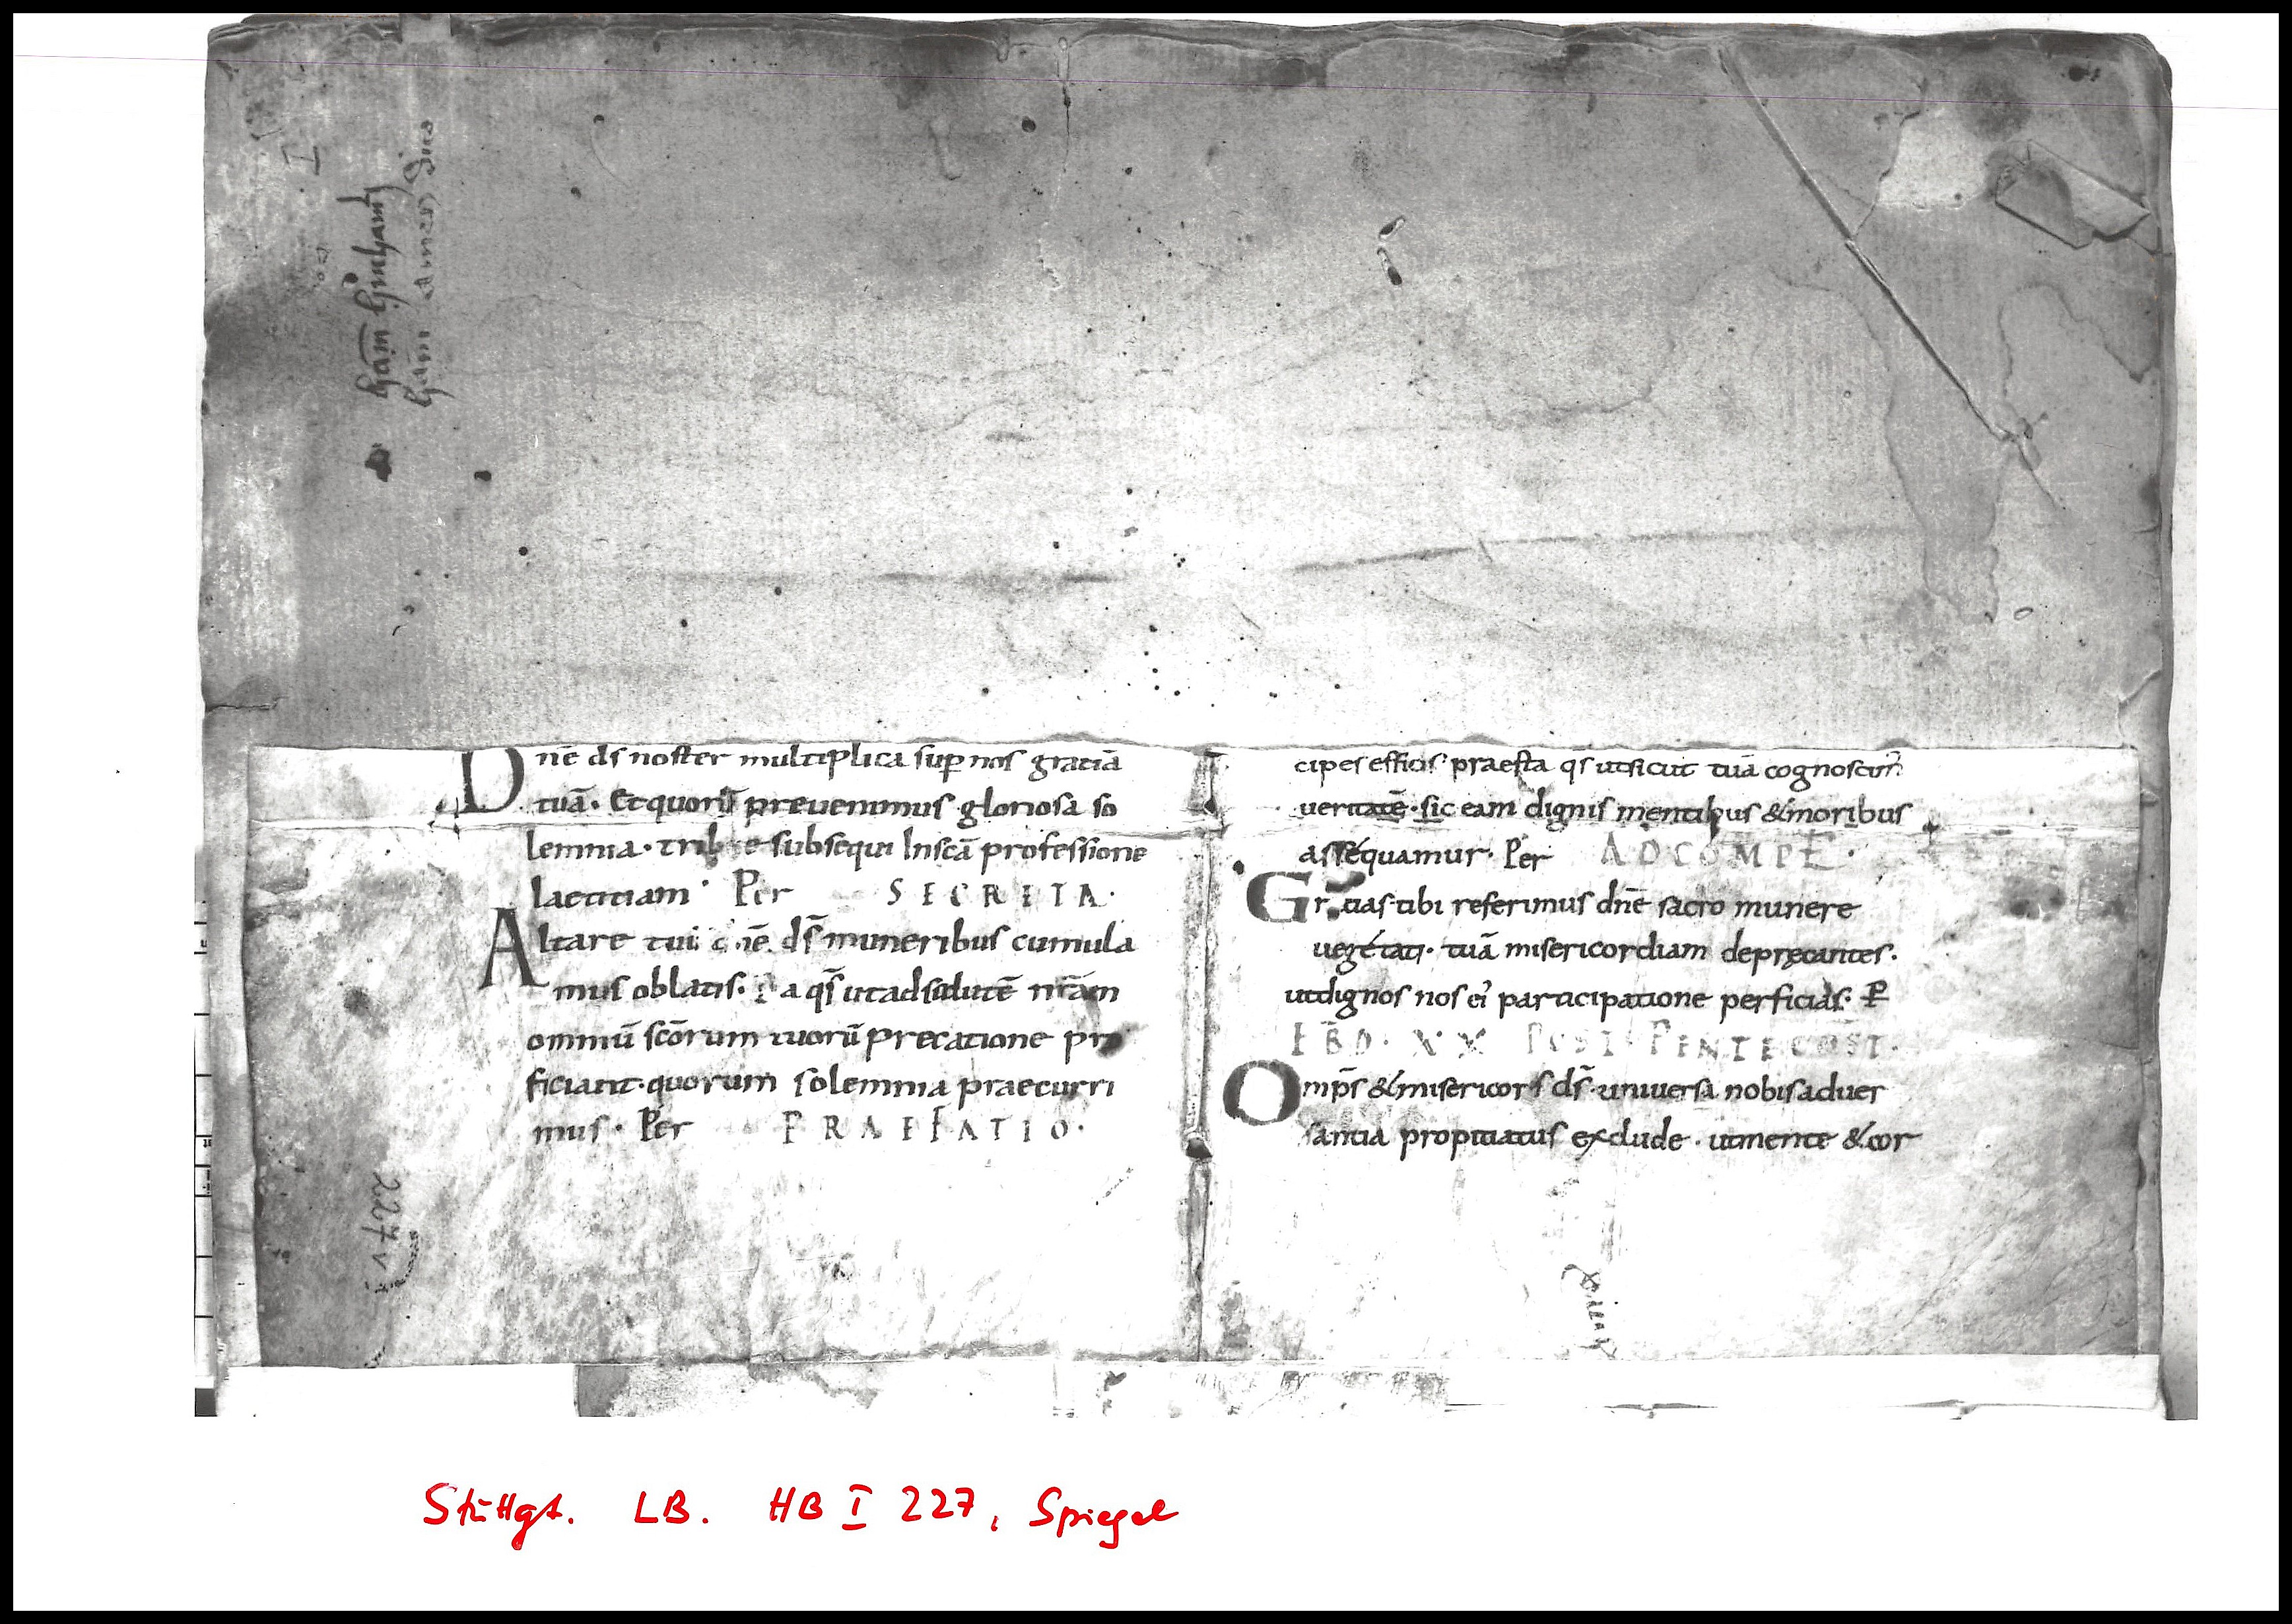 Dnē ds noster multiplica suꝑ nos gratiā
tuā. Et quorū prevenimus gloriosa so
lemnia. trib e subsequi In scā professione
laetitiam. Per SECRETA.
Altare tui dnē ds̄ muneribus cumula
mus oblatis. Da qs̄ ut ad salutē nr̄am
omniū scōrum tuorū precatione pro
ficiant. quorum solemnia praecurri
mus. Per PRAEFATIO.
cipes efficis praesta qs ut sicut tuā cognoscim᷒
veritatē. sic eam dignis mentibus & moribus
assequamur. Per AD COMPL̄.
Gratias tibi referimus dn̄e sacro munere
vegetati. tuā misericordiam depręcantes.
ut dignos nos ei᷒ participatione perficias. P
EBD. XX POST PENTECOST.
Omp̄s & misericors ds̄. universa nobis adver
santia propitiatus exclude. ut mente & cor
227
Stuttgt. LB. HB I 227, Spiegel